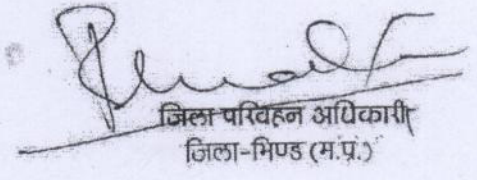 जिला परिवहन अधिकारी
जिला-भिण्ड (म.प्र.)